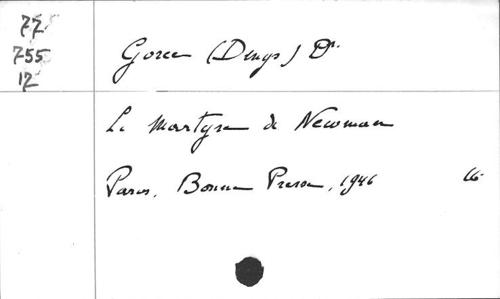 77
755
12
Gorce (Denys) Dr.
Le Martyre de Newman
Paris, Bonne Presse, 1946 16